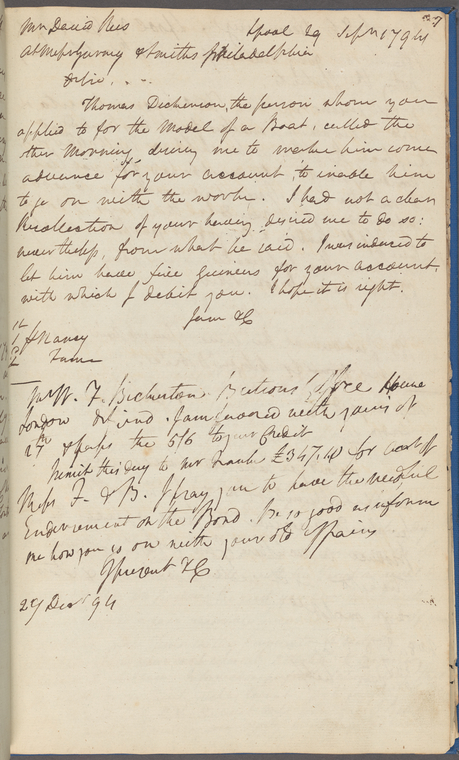 Mr David Reis Lpool 29 Sepr 1794
At Messrs Gurney & Smiths Philadelphia
Sir
Thomas Dickinson, the person whom you
applied to for the Model of a Boat, called the
other Morning, desiring me to make him some
advance for your account to inable him
to go on with the work. I had not a clear
Recollection of your having desired me to do so:
nevertheless, from what he said. I was induced to
let him have five Guineas for your account
with which I debit you. I hope it is right.
I am &C
1st Nancy
2d Fame
Mr W. F. Bicherton Office House
London Friend. I am favored with yours of
27th & pass the 5/6 to your Credit
Remit this day to Mr Frank £347.10 for acct of
Messrs F. & B. I pray you to have the needful
Endorsement on the Bond. Be so good as inform
me how you go on with your old Affairs
I present &C
29 Decr 94